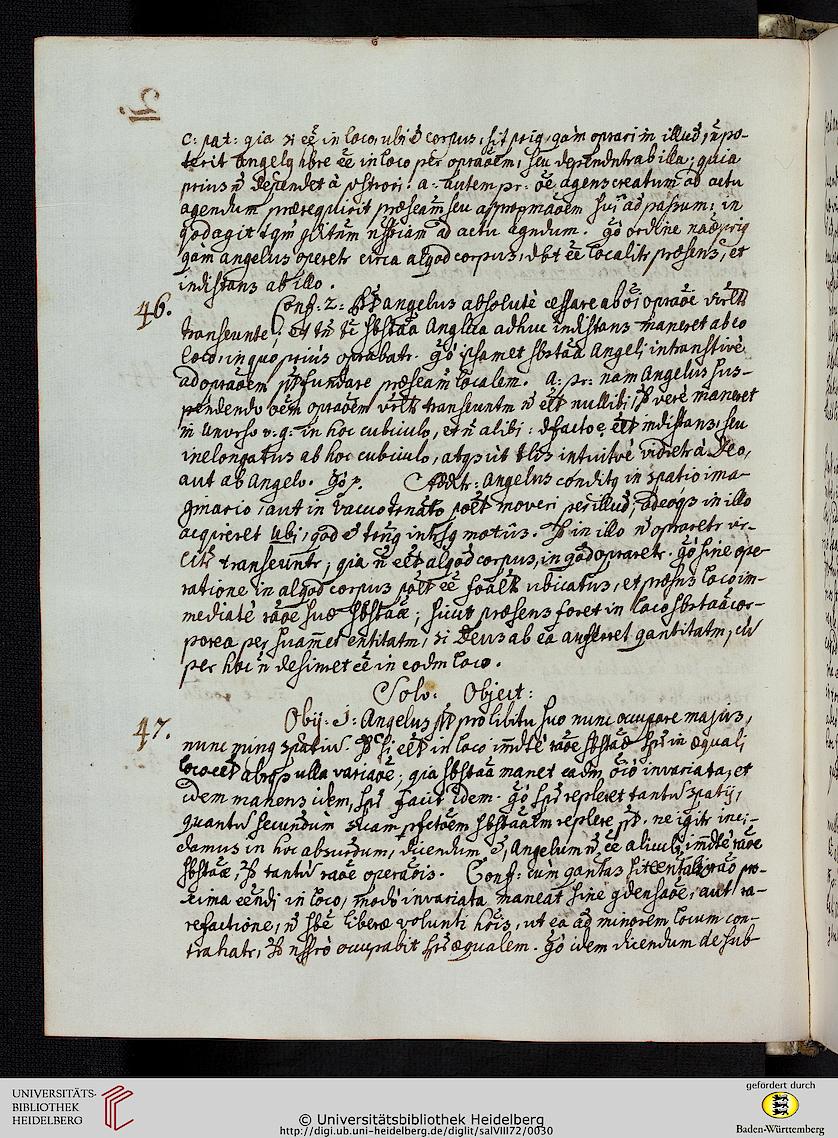 21
c: pat: qia si eē in loco, ubi ē corpus, sit priq, qam oprari in illud, n̄ po-
terit angelq lbre eē in loco per opraōem, seu dependntr ab illa; quia
prius n̄ depandet à pstrori. a: autem pr: oē agens creatum ad actu
agendum prærequirit præseam seu appropmāoem sui ad passum; in
qod agit tqm nssriam ad actu agndum. gō ordine naē priq
qam angelus operetr circa alqod corpus, dbt eē localitr præsens, et
indistans ab illo.
46. Conf: 2: pt angelus absolutè cessare ab oī opraōe virlt
transeunte, et tn̄ sbstāā Anglica adhuc indistans maneret ab eo
loco, in quo priùs oprabatr. Gō ipsamet sbstāā Angeli intransitivè
ad opraōem pt fundare præseam localem. a: pr: nam Angelus sus-
pendendo oēm opraōem virlt transeuntm n̄ eēt nullibi, sd verè maneret
in Universo v: g: in hoc cubiculo, et n̄ alibi: d facto eēt indistans, seu
inelongatus ab hoc cubiculo, atqs ut tlis intuitvè vidretr à Deo,
aut ab angelo. gō p. Addtr: angelus conditq in spatio ima-
ginario, aut in vacuo creato pōēt moveri per illud, adeoqs in illo
acqireret Ubi, qod ē trnq intrsq motûs. Sd in illo n̄ opraretr vir-
litr transeuntr; qia n̄ eēt alqod corpus, in qod opraretr. gō sine ope-
ratione in alqod corpus pōēt eē foālt ubicatus, et præsens loco im-
mediatè raōe suæ sbstāæ; sicut præsens foret in loco sbstāā cor-
porea per suammet entitatm, si Deus ab ea auferret qantitatm, cū
per hoc n̄ desineret eē in eodm loco.
Solv: Object:
47. Obij: I: Angelus pt pro libitu suo nunc occupare majus,
nunc minq spatiū. Sd si eēt in loco immdtè raōe sbstāæ spr in æquali
loco eēt absqs ulla variaōe; qia sbstāā manet eadm, oīo invariata, et
idem manens idem, spr facit idem. gō spr repleret tantū spatij,
quantū secundùm suam pfctōem sbstāālm replere pt. ne igitr inci-
damus in hoc absurdum, dicendum ē, Angelum n̄ eē alicubi immdtè raōe
sbstāæ, sd tantū raōe operaōis. Conf: cùm qantas sit entalis raō pro-
xima eēndi in loco, modò invariata maneat sine qdensaōe, aut ra-
refactione, n̄ sbē liberæ volunti hōis, ut ea ad minorem locum con-
trahatr, sd nssrò occupabit spr æqualem. gō idem dicendum de sub-
UNIVERSITÄTS-
BIBLIOTHEK
HEIDELBERG
© Universitätsbibliothek Heidelberg
http://digi.ub.uni-heidelberg.de/diglit/salVIII72/0030
gefördert durch
Baden-Württemberg